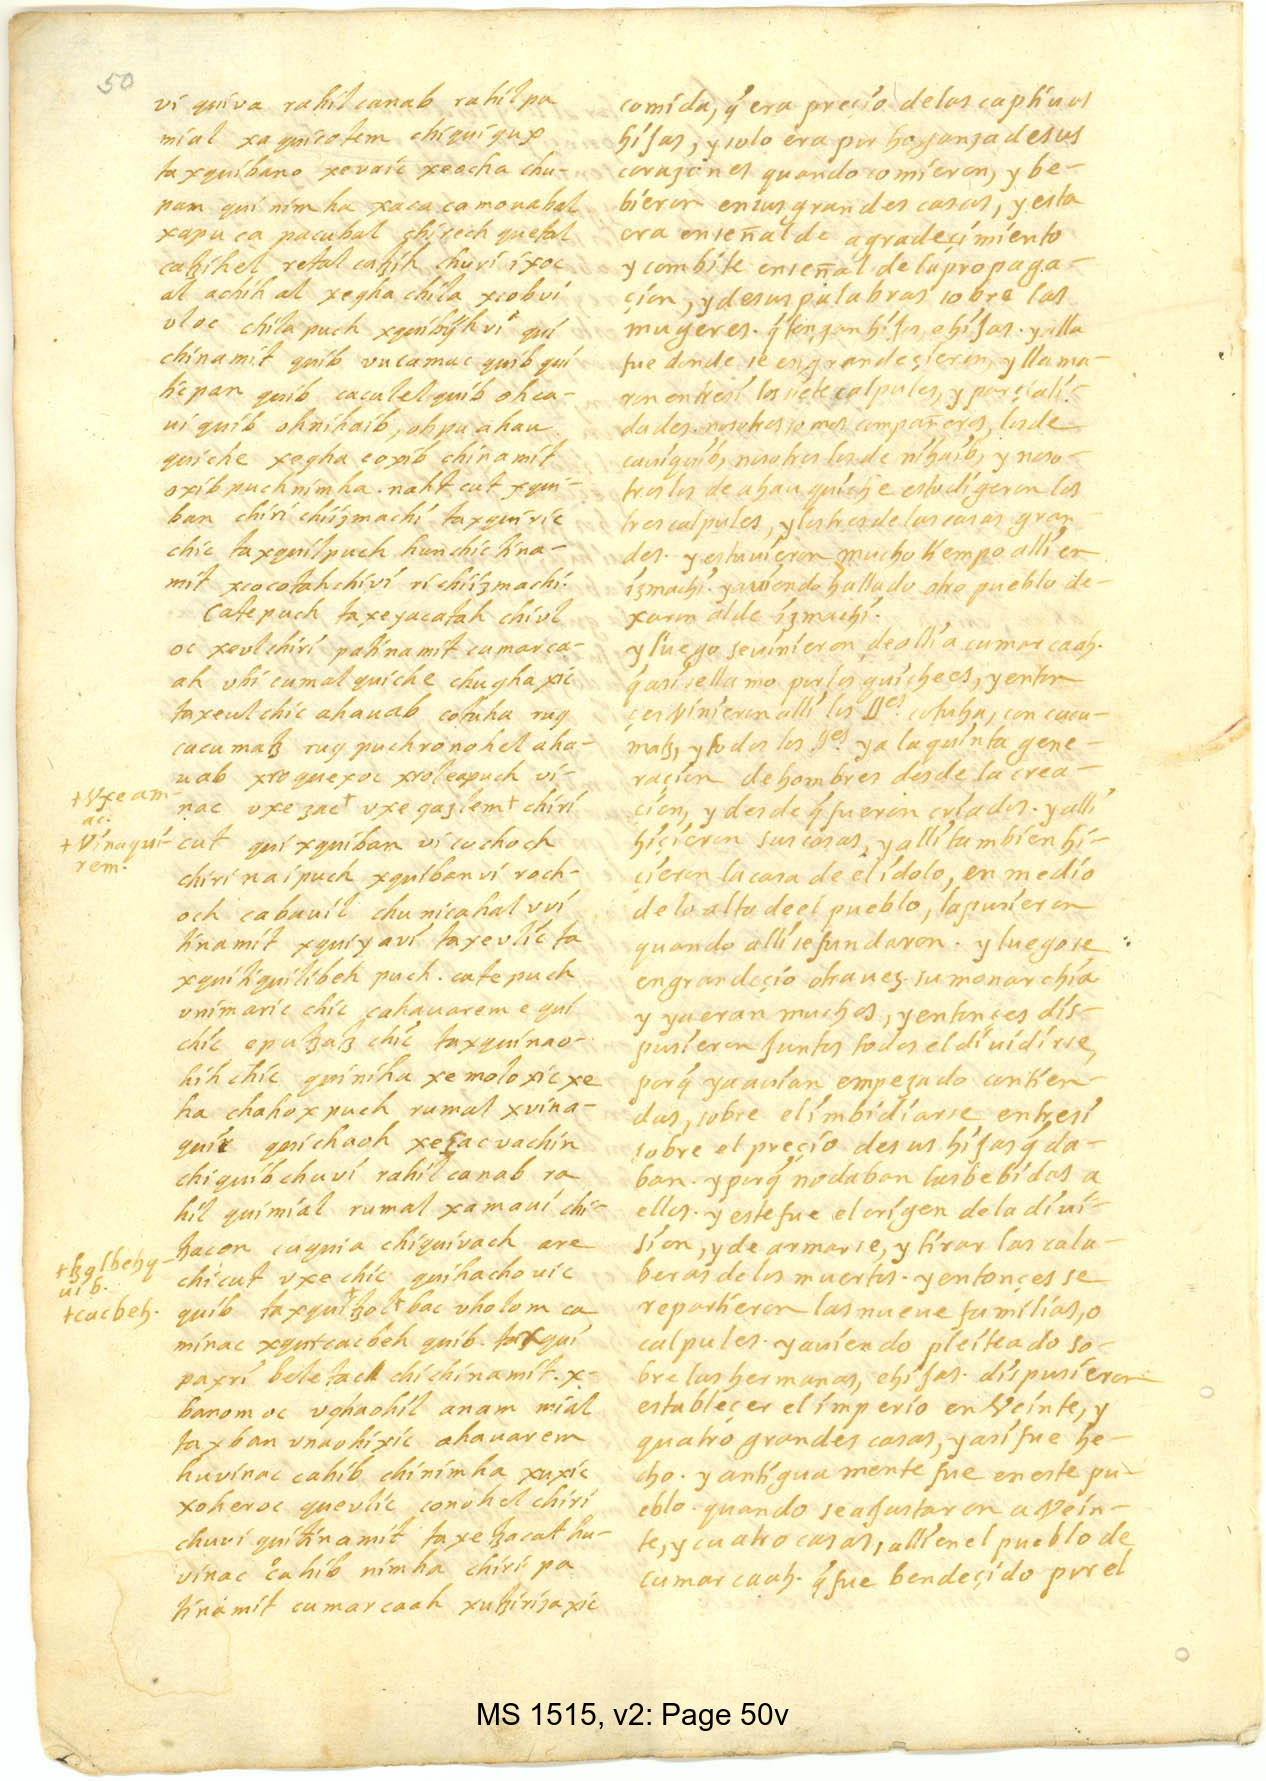 50
vi quiva rahil canab rahil pa
mial xa quicotem chiquiqux
ta xquibano xevaic xeocha chu-
pan qui nimha xaca camouabal
xapu ca pacubal chirech quetal
catzihel retal catzih chuvi ixoc
al achih al xegha chila xcobvi
vloc chila puch xquibijh vi qui
chinamit quib vucamac quib qui
ticpan quib cacalel quib oh ca-
ui quib oh nihaib, oh pu ahau
quiche xegha eoxib chinamit
oxib puch nimha. naht cut xqui-
ban chiri chiizmachi ta xquiric
chic ta xquil puch hun chic tina-
mit xcocotah chivi ri chiizmachi.
Catepuch ta xe yacatah chivl
oc xeul chiri pa tinamit cumarca-
ah vbi cumal quiche chughaxic
ta xeul chic ahauab cotuha ruq
cucumatz ruq puch ronohel aha-
uab xroquexoc xroleapuch vi-
nac vxe zac+ vxe gazlem+ chiri
cut qui xquiban vi cochoch
chiri nai puch xquiban vi roch-
och cabauil chu nicahal vvi
tinamit xquiyavi ta xevlic ta
xquitiquilibeh puch. cate puch
vnimaric chic cahauarem e qui
chic e putzatz chic ta xquinao-
hih chic quiniha xe moloxic xe
ha chahox puch rumal xvina-
quir quichaoh xetzacvachin
chiquib chuvi rahil canab ra
hil quimial rumal xamaui chi-
tzacon cuquia chiquivach are
chi cut vxe chic quihachouic
quib ta xqui+tzol+ bac vholom ca
minac xquicacbeh quib. ta xqui
paxri beletach chi chinamit. x-
banom oc vghaohil anam mial
ta xban vnaohixic ahauarem
huvinac cahib chi nimha xuxic
xoheroc quevlic conohel chiri
chuvi quitinamit ta xetzacat hu-
vinac cahib nimha chiri pa
tinamit cumarcaah xutzirizaxic
+ vxe am-
ac.
+ Vinaqui-
rem.
+ cacbeh.
comida, q̃ era preçio de las captiuas
hijas, y solo era por holganza de sus
corazones quando comieron, y be-
bieron en sus grandes casas, y esta
era en señal de agradeçimiento
y combite en señal de la propaga-
çion, y de sus palabras sobre las
mugeres. q̃ tengan hijos, e hijas. y alla
fue donde se engrandeçieron, y llama-
ron entresi los siete calpules, y parçiali-
dades. nosotros somos compañeros, los de
cauiquib, nosotros los de nihaib, y noso-
tros los de ahau quiche esto digeron los
tres calpules, y los tres de las casas gran-
des. y estuuieron mucho tiempo alli en
izmachi. y auiendo hallado otro pueblo de-
xaron al de izmachi.
y luego se vinieron de alli a cumarcaah.
q̃ asi se llamo por los quichees, y enton
çes Vinieron alli los SS.es cotuha, con cucu-
matz, y todos los S.es y a la quinta gene-
raçion de hombres desde la crea-
çion, y desde q̃ fueron criados. y alli
hiçieron sus casas, y alli tambien hi-
çieron la casa de el idolo, en medio
de lo alto de el pueblo, la pusieron
quando alli se fundaron. y luego se
engrandeçio otra uez su monarchia
y ya eran muchos, y entonçes dis-
pusieron juntos todos el diuidirse,
porq̃ ya auian empezado contien-
das, sobre el imbidiarse entresi
sobre el preçio de sus hijas q̃ da-
ban. y porq̃ no daban las bebidas a
ellos. y este fue el origen de la diui-
sion, y de armarse, y tirar las cala-
beras de los muertos. y entonçes se
repartieron las nueue familias, o
calpules. y auiendo pleiteado so-
bre las hermanas, e hijas. dispusieron
estableçer el imperio en Veinte, y
quatro grandes casas, y asi fue he-
cho. y antiguamente fue en este pu-
eblo quando se ajustaron a Vein-
te, y cuatro casas, alli en el pueblo de
cumarcaah. q̃ fue bendeçido por el
MS 1515, v2: Page 50v